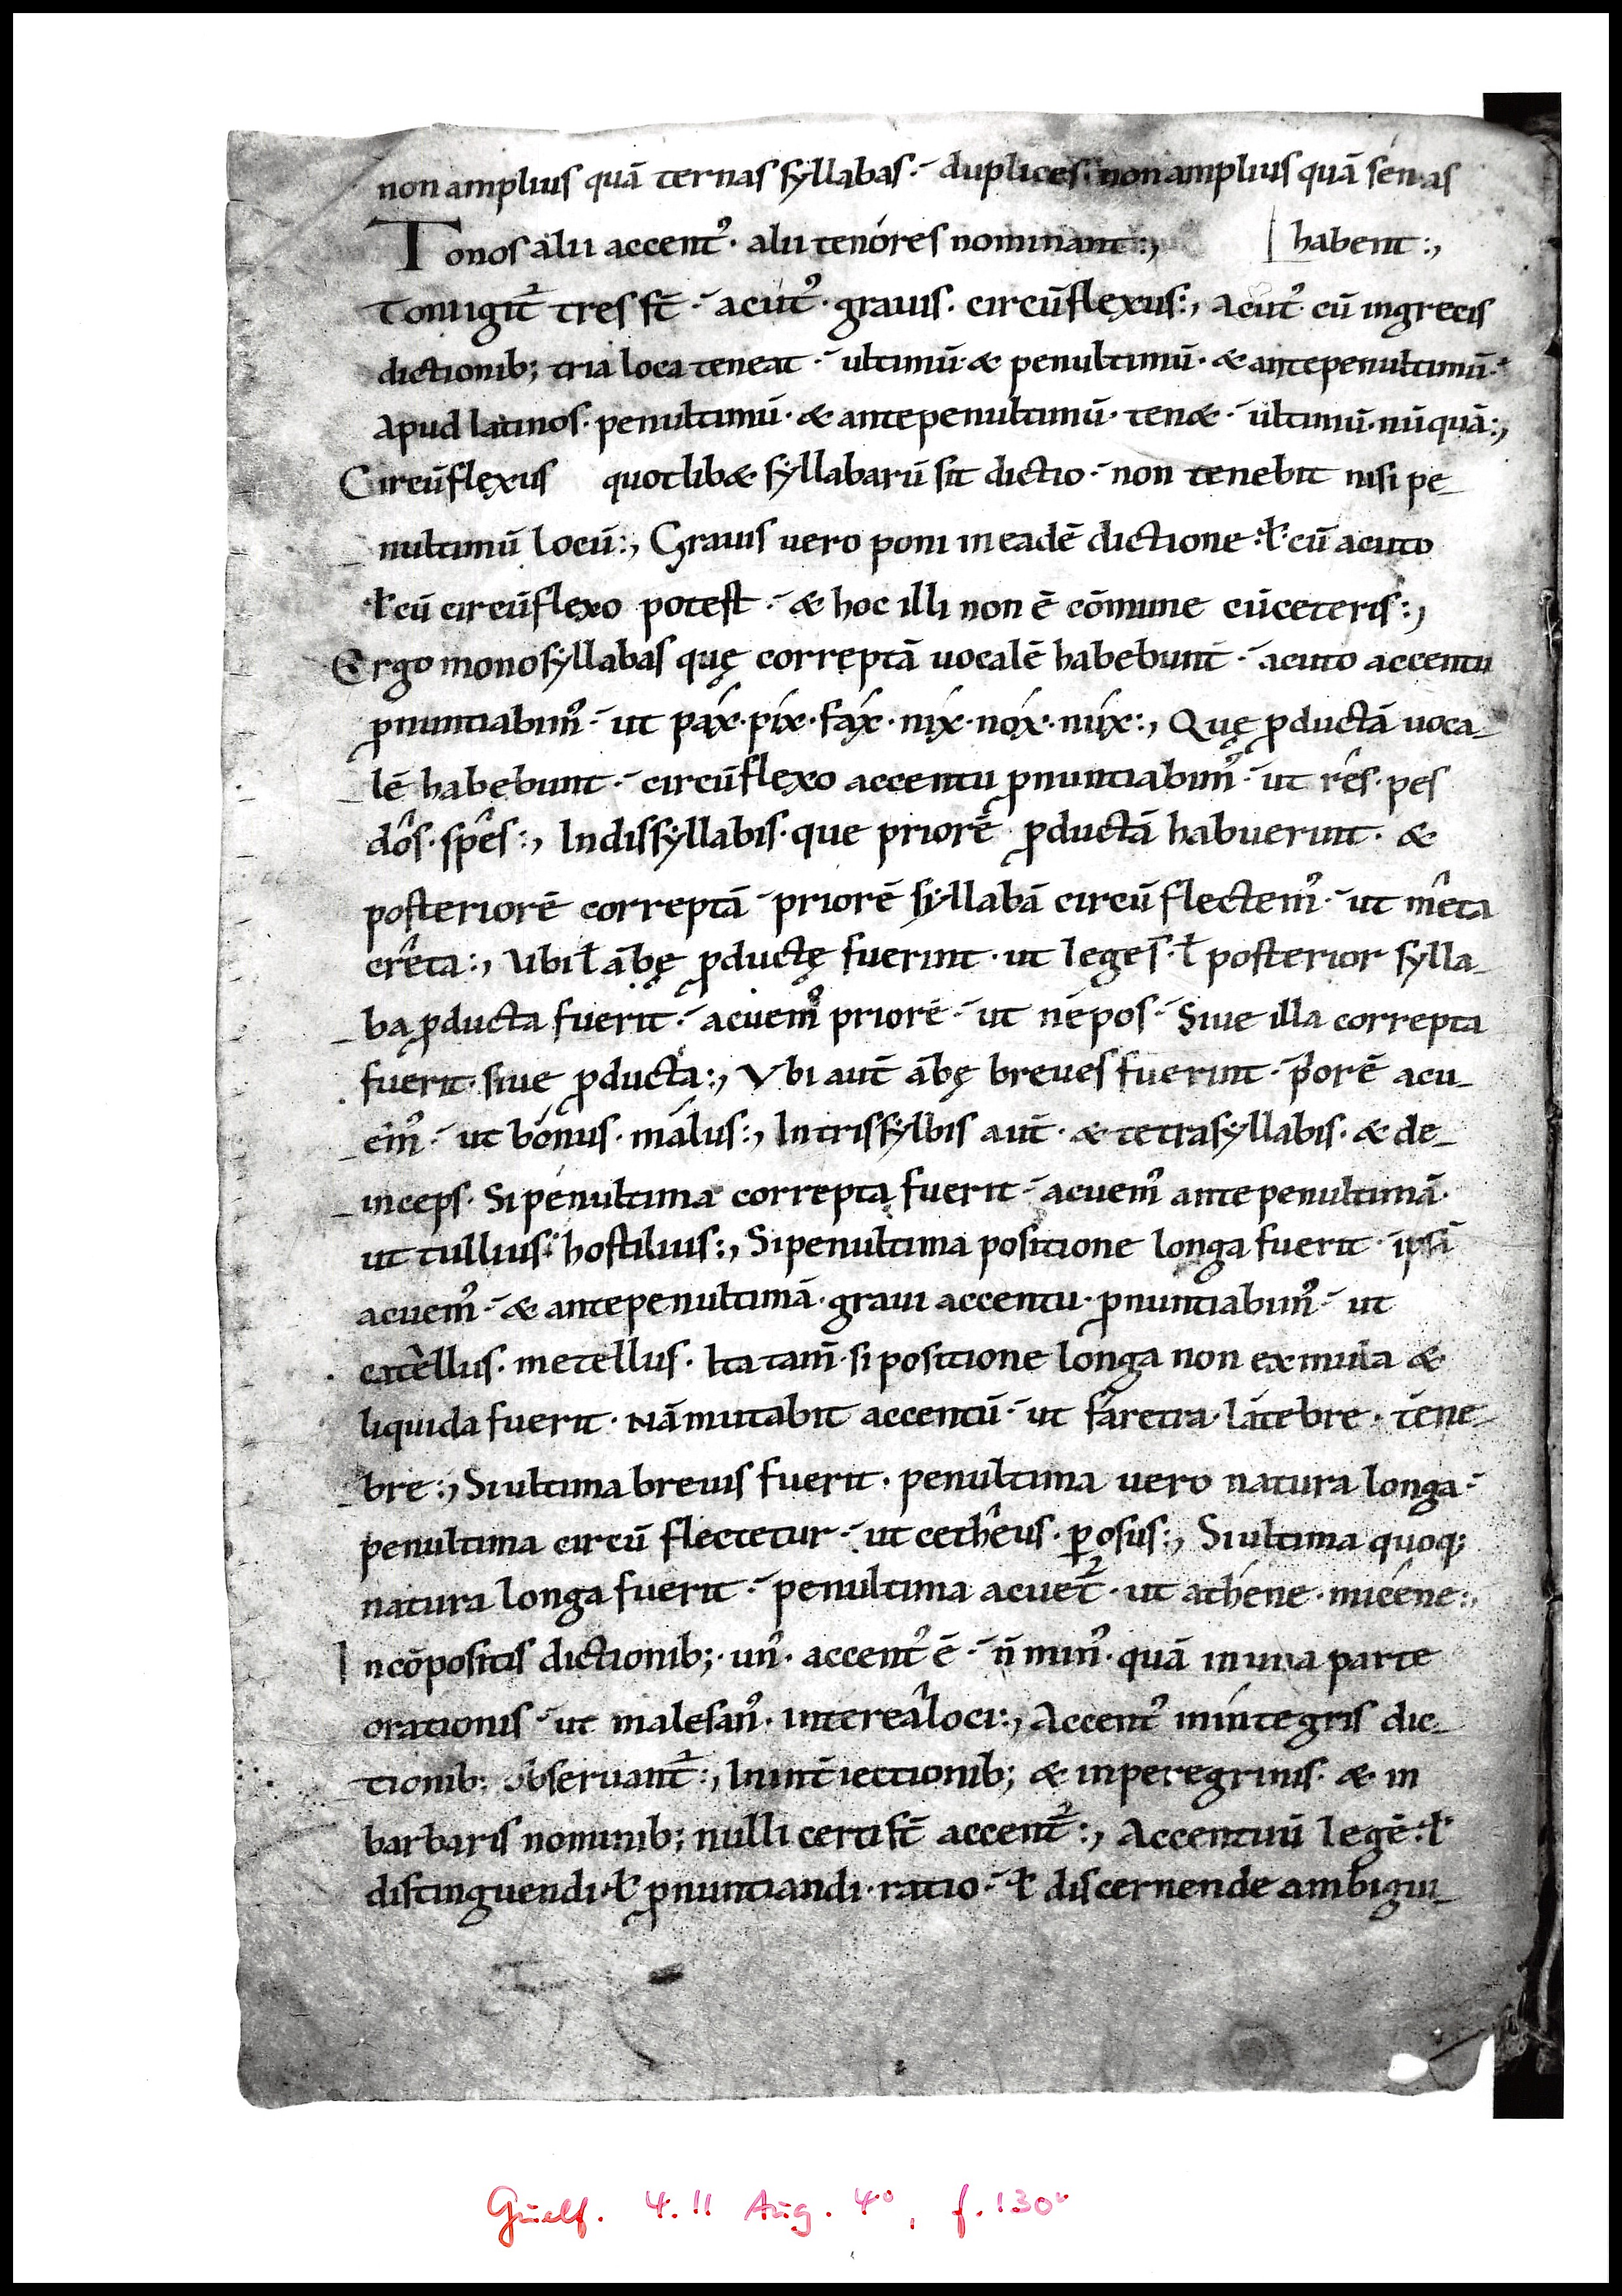 non amplius quā ternas syllabas·- duplices· non amplius quā sénas
Tonos alii accent᾿· alii tenóres nominant:, | habent:,
Toni igit᷑ tres st̄·- acut᾿· grauis· circūflexus:, Acut᾿ cū in grecis
dictionib; tria loca teneat·- ultimū· & penultimū· & antepenultimū·-
apud latinos· penultimū· & antepenultimū· ten&·- ultimū· nūquā:,
Circūflexus quotlib& syllabarū sit dictio·- non tenebit nisi pe_
_nultimū locū:, Grauis uero poni in eadē dictione·ł· cū acuto
·ł· cū circūflexo potest·- & hoc illi non ē cōmune cū ceteris:,
Ergo monosyllabas quę correptā uocalē habebunt·- acuto accentu
ꝓnuntiabim᾿·- ut páx· píx· fáx· níx· nóx· núx:, Quę ꝓductā uoca_
_lē habebunt·- circūflexo accentu ꝓnuntiabim᾿·- ut rês· pes
dôs· spês:, In dissyllabis· que priorē ꝓductā habuerint· &
posteriorē correptā·- priorē syllabā circūflectem᾿·- ut mêta
crêta:, Ubi ł ābę ꝓductę fuerint· ut leges·ł posterior sylla_
_ba ꝓducta fuerit·- acuem᾿ priorē·- ut népos·- Siue illa correpta
fuerit· siue ꝓducta:, Vbi aut̄ ābę breues fuerint·- p̄orē acu_
_em᾿·- ut bónus· málus:, In trissyłbis aut̄· & tetrasyllabis· & de_
_inceps· Si penultima correpta fuerit·- acuem᾿ antepenultimā·
ut tullius· hostilius:, Si penultima positione longa fuerit· ipsā
acuem᾿·- & antepenultimā· graui accentu· ꝓnuntiabim᾿·- ut
catèllus· metellus· Ita tam̄· si positione longa non ex muta &
liquida fuerit· Nā mutabit accentū·- ut fáretra· látebre· téne_
_bre:, Si ultima breuis fuerit· penultima uero natura longa·-
penultima circūflectetur·- ut cethêus· ꝑosus:, Si ultima quoq;
natura longa fuerit·- penultima acuet᷑· ut athéne· micéne:,
In cōpositis dictionib;· un᾿· accent᾿ ē·- n̄ min᾿· quā in una parte
orationis·- ut malesan᾿· intereâloci:, Accent᾿ in íntegris dic_
tionib; obseruant᷑:, In int̄iectionib; & in peregrinis· & in
barbaris nominib; nulli certi st̄ accent᾿:, Accentuū legē·ł·
distinguendi·ł· ꝓnuntiandi· ratio·- ł discernende ambigui_
Guelf. 4.11 Aug. 4°, f. 130v